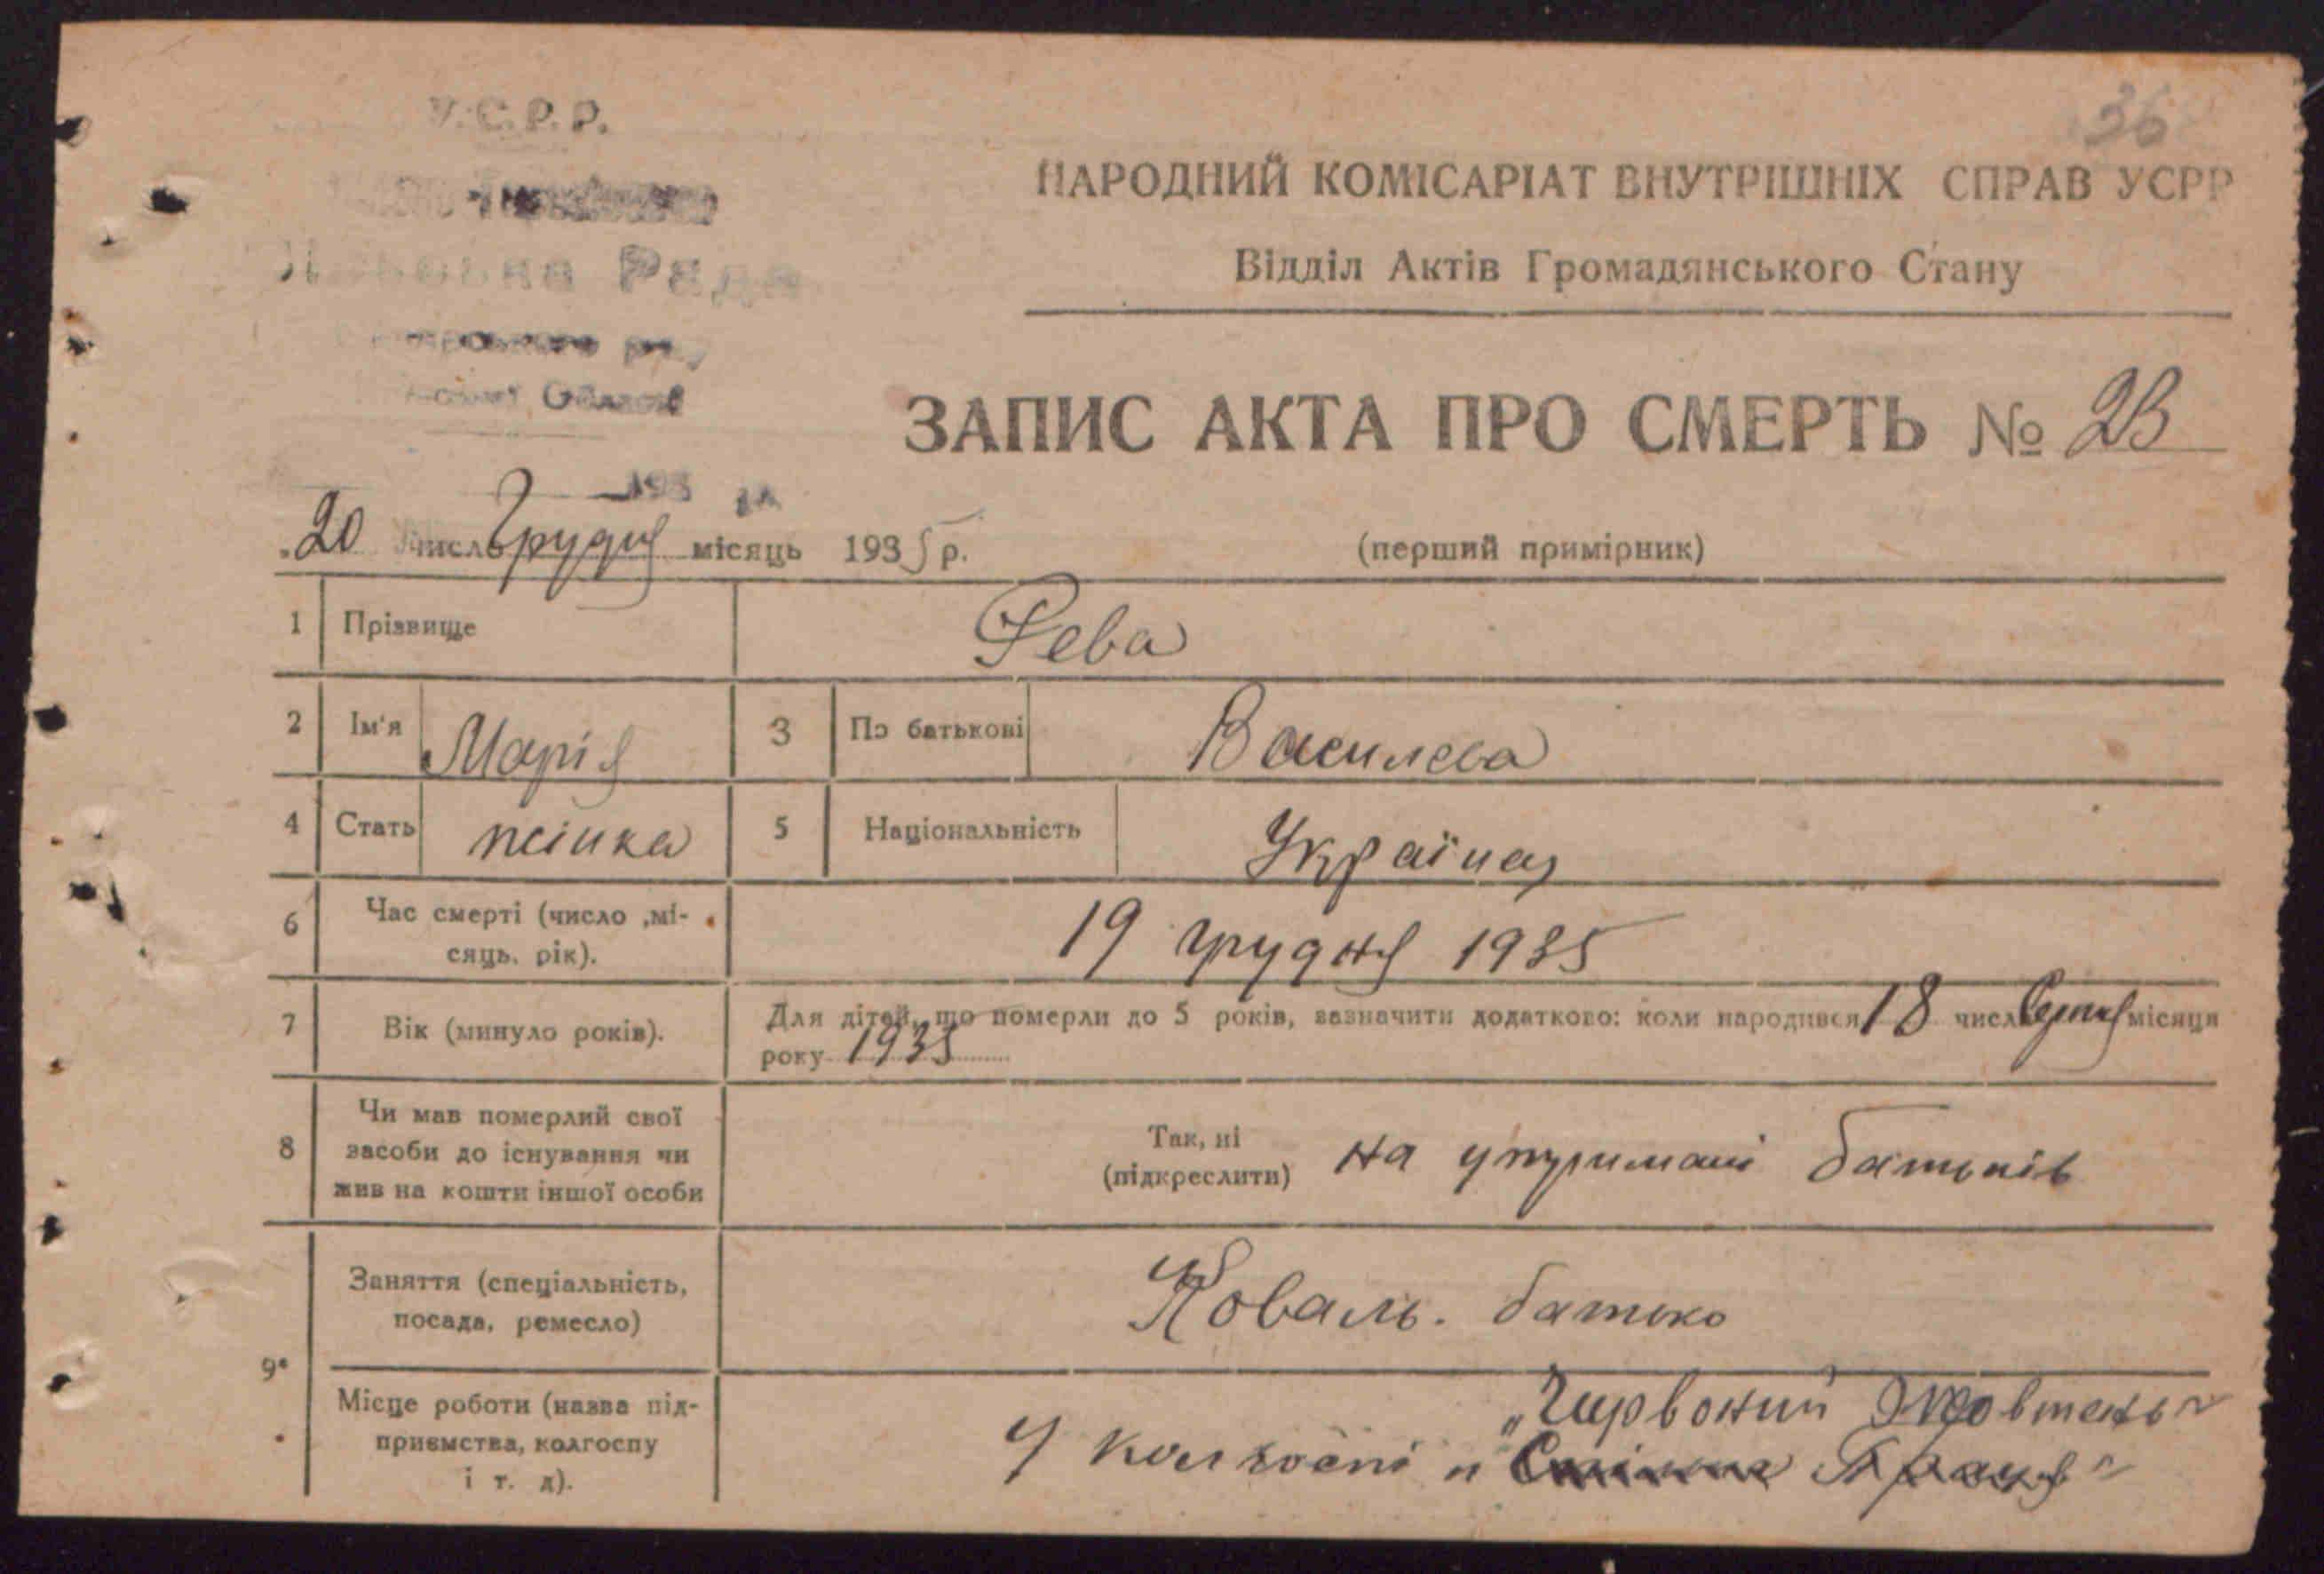 У.С.Р.Р.
Рада
36
НАРОДНИЙ КОМІСАРІАТ ВНУТРІШНІХ СПРАВ УСРР
Відділ Актів Громадянського Стану
ЗАПИС АКТА ПРО СМЕРТЬ № 23
193
20 число Грудня місяць 1935 р.
(перший примірник)
1 Прізвище Рева
2 Ім'я Марія 3 По батькові Василева
4 Стать жінка 5 Національність Україна
6 Час смерті (число ,мі-
сяць, рік). 19 грудня 1935
7 Вік (минуло років). Для дітей, що померли до 5 років, зазначити додатково: коли народився 18 числ Серпня місяця
року 1935
8 Чи мав померлий свої
засоби до існування чи
жив на кошти іншої особи
Так, ні
(підкреслити) на утримані батьків
9 Заняття (спеціальність,
посада, ремесло) Коваль. батько
Місце роботи (назва під-
приємства, колгоспу
і т. д). „Чирвоний Жовтень"
У колгоспі „